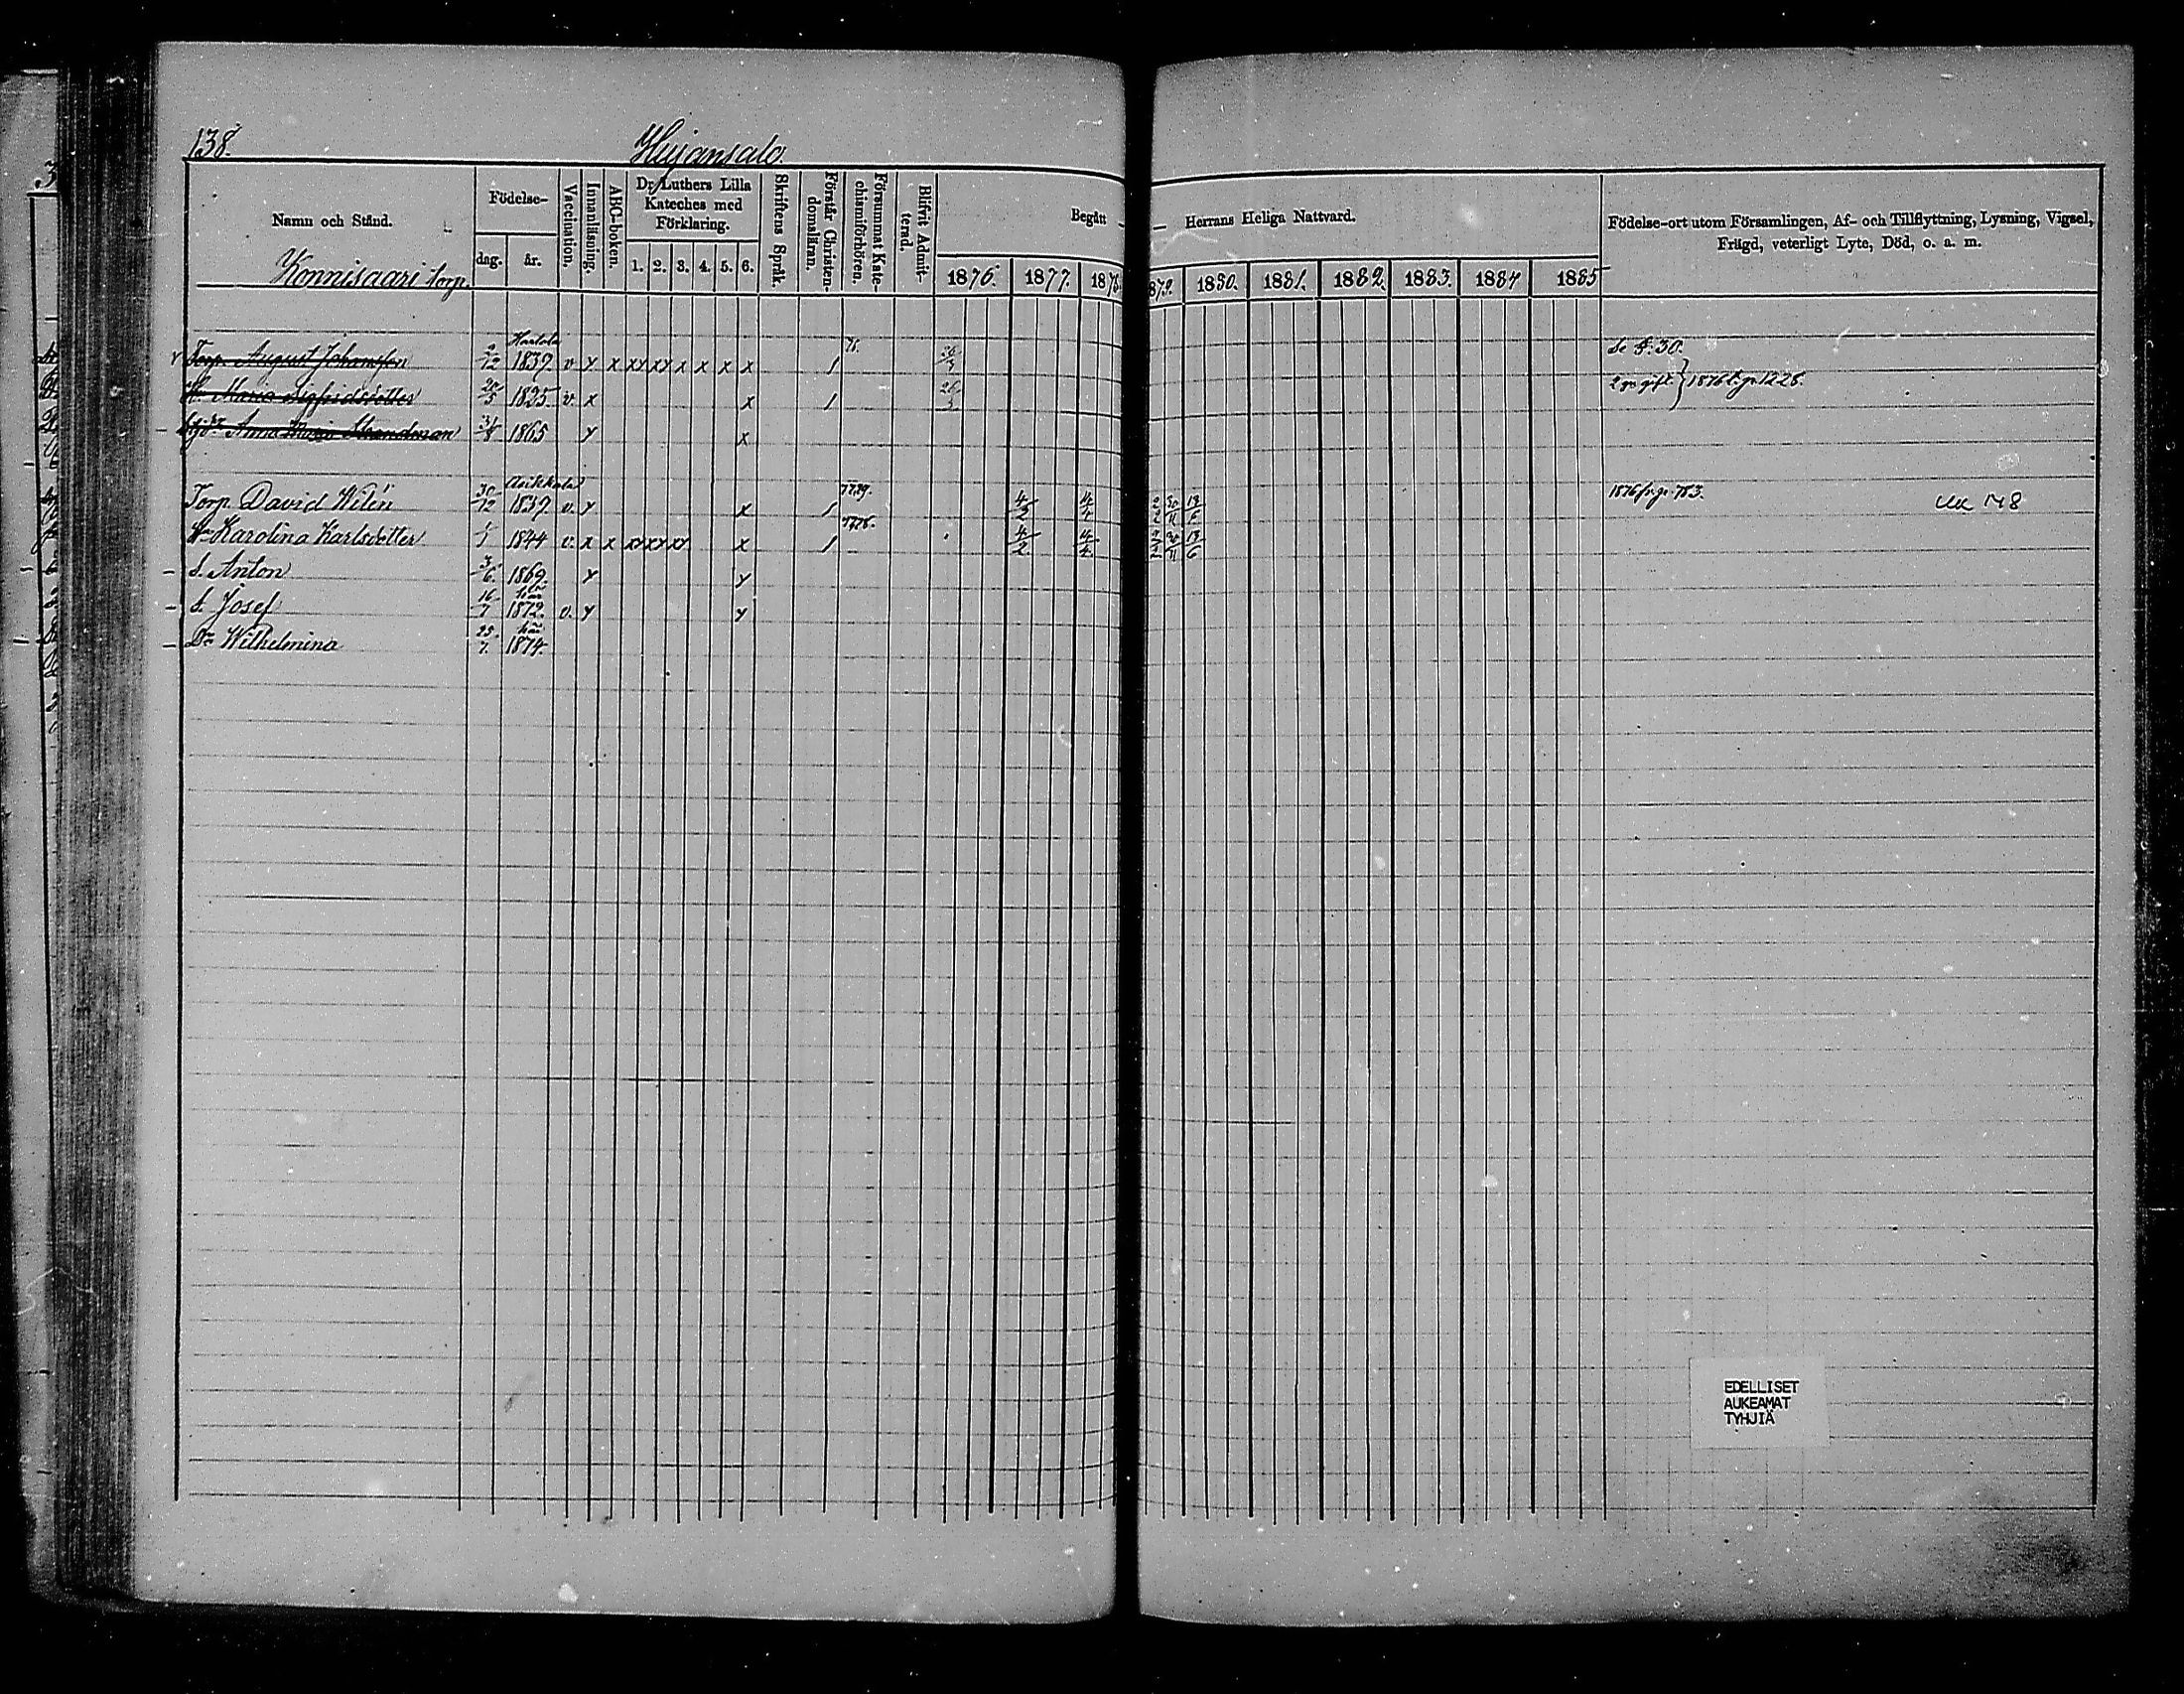 138.
Hujansalo
Namn och Stånd.
Konnisaari torp.
Födelse-
dag.
år.
Vaccination.
Innanläsning.
ABC-boken.
Dr Luthers Lilla
Kateches med
Förklaring.
1. 2. 3. 4. 5. 6.
Skriftens Språk.
Förstår Christen-
domsläran.
Försummat Kate-
chismiförhören.
Blifvit Admit-
terad.
Begått — Herrans Heliga Nattvard.
1876. 1877. 1878 1879. 1880. 1881. 1882. 1883. 1884 1885
Födelse-ort utom Församlingen, Af- och Tillflyttning, Lysning, Vigsel,
Frägd, veterligt Lyte, Död, o. a. m.
Hartola
Torp. August Johansson 2/12 1837. v y x xx xx x x x x 1 26/3
H. Maria Sigfridsdotter 20/5 1825. v. x x 1 26/3 2 gr gift. } 1876 t. p. 1228.
Anna Maria Strandman 31/8 1865 y x
Asikkala
Torp. David Wilén 30/12 1837. v. y x 1 4/2
Hu Karolina Karlsdotter 1/1 1844 v. x x x 1 4/2 30/11 13/6
S. Anton 3/6. 1869. y y
här
S. Josef 16/7 1872. v. y y
här
Dr Wilhelmina 25/7. 1874.
EDELLISET
AUKEAMAT
TYHJIÄ